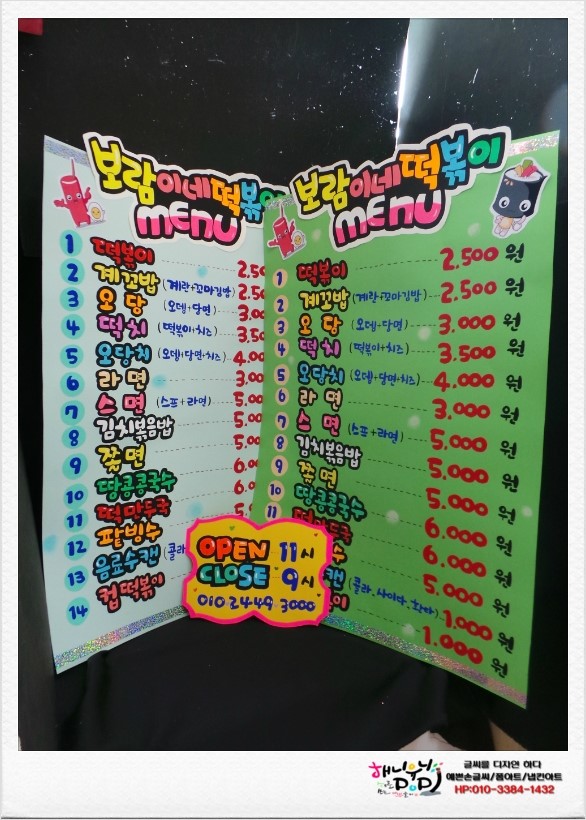 보람이네떡볶
MENU
1 떡볶이 2.50
2 계꼬밥 (계란+꼬마김밥) 2.50
3 오당 (오뎅+당면) 3.00
4 떡치 (떡볶이+치즈) 3.50
5 오당치 (오뎅+당면+치즈) 4.00
6 라면 3.00
7 스면 (스프+라면) 5.00
8 김치볶음밥 5.00
9 쫄면 5.00
10 땅콩콩국수 6.00
11 떡만두국 6.
12 팥빙수 5.
13 음료수캔 (콜라
14 컵떡볶이
보람이네떡볶이
MENU
1 떡볶이 2.500 원
2 계꼬밥 (계란+꼬마김밥) 2.500 원
3 오당 (오뎅+당면) 3.000 원
4 떡치 (떡볶이+치즈) 3.500 원
5 오당치 (오뎅+당면+치즈) 4.000 원
6 라면 3.000 원
7 스면 (스프+라면) 5.000 원
8 김치볶음밥 5.000 원
9 쫄면 5.000 원
10 땅콩콩국수 6.000 원
11 떡만두국 6.000 원
수 5.000 원
캔 (콜라.사이다.환타) 1.000 원
이 1.000 원
OPEN 11시
CLOSE 9시
010 2449 3000
해니유니 POP
글씨를 디자인 하다
예쁜손글씨/폼아트/냅킨아트
HP:010-3384-1432